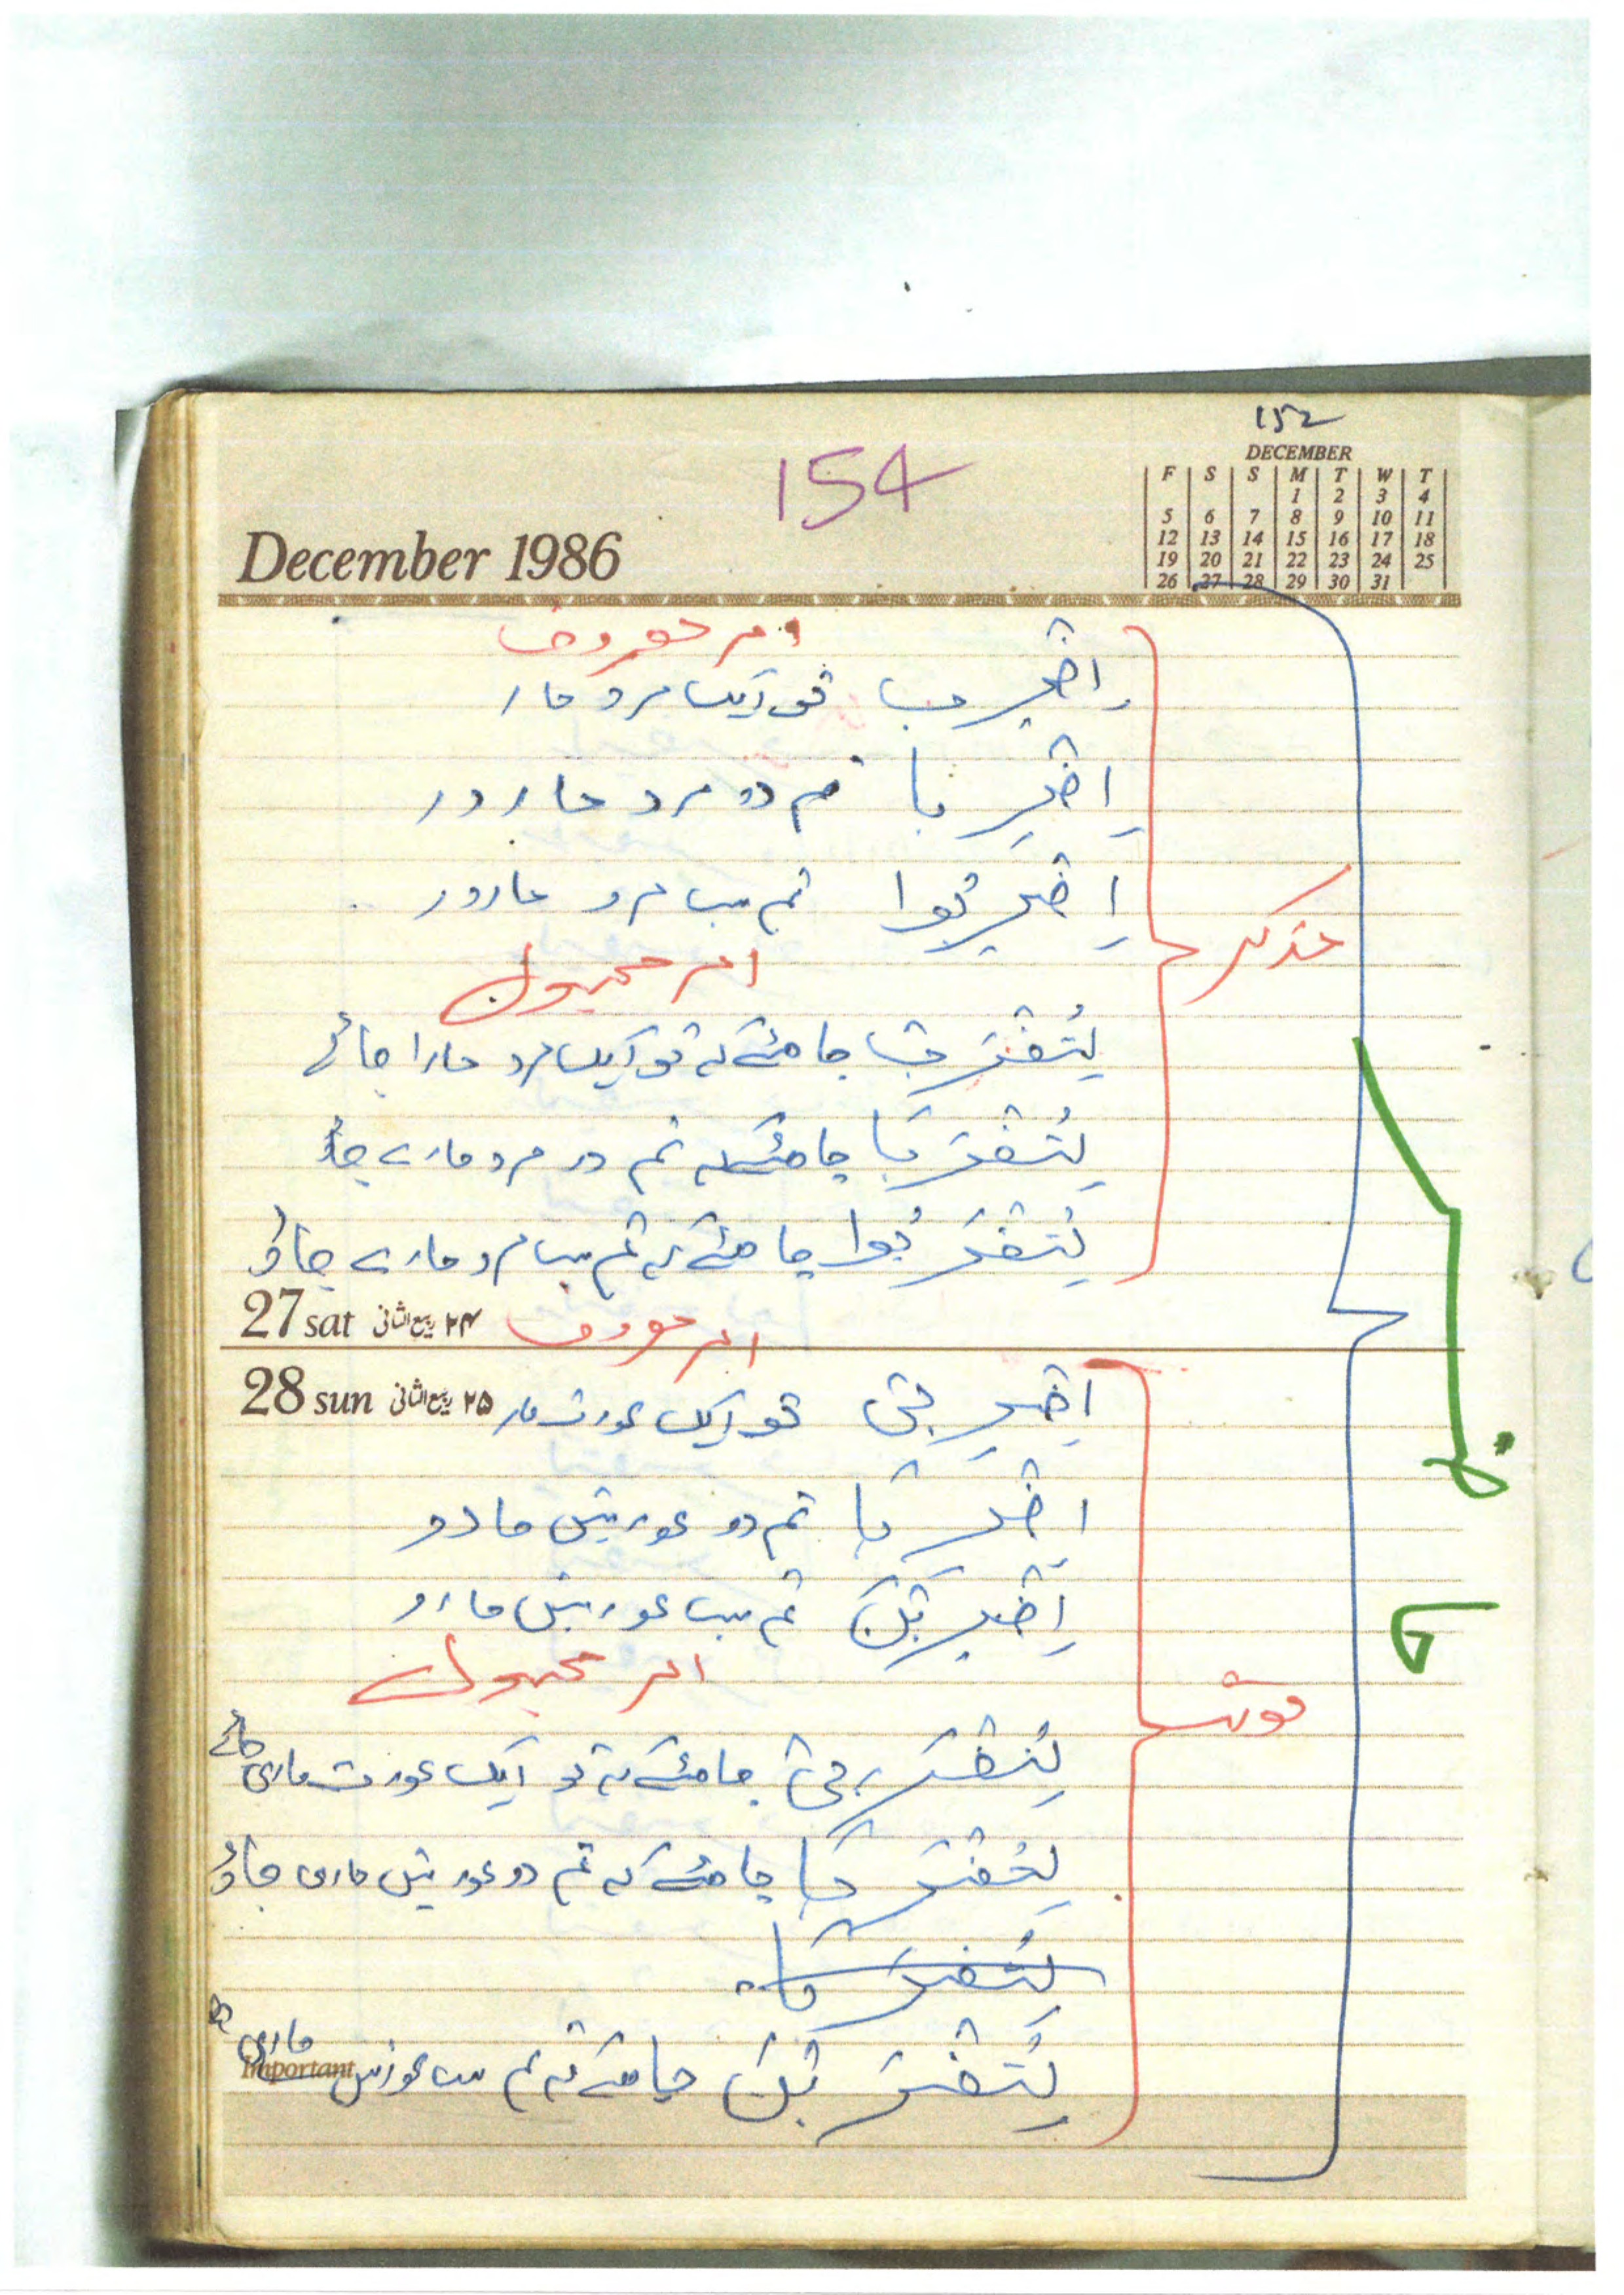 152
154
December 1986
DECEMBER
F S S M T W T
1 2 3 4
5 6 7 8 9 10 11
12 13 14 15 16 17 18
19 20 21 22 23 24 25
26 27 28 29 30 31
امر معروف
اِضْرِب تو ایک مرد مار
اِضْرِبا تم دو مرد مارو
اِضْرِبُوا تم سب مرد مارو
مذکر
امر مجہول
لِتُضْرَبْ چاہئے کہ تو ایک مرد مارا جائے
لِتُضْرَبَا چاہئے کہ تم دو مرد مارے جاؤ
لِتُضْرَبُوا چاہئے کہ تم سب مرد مارے جاؤ
27 sat ۲۴ ربیع الثانی
امر معروف
28 sun ۲۵ ربیع الثانی
اِضْرِبِی تو ایک عورت مار
اِضْرِبَا تم دو عورتیں مارو
اِضْرِبْنَ تم سب عورتیں مارو
امر مجہول
مونث
لِتُضْرَبِی چاہئے کہ تو ایک عورت ماری جائے
لِتُضْرَبَا چاہئے کہ تم دو عورتیں ماری جاؤ
لِتُضْرَبَا
لِتُضْرَبْنَ چاہئے کہ تم سب عورتیں ماری
Important